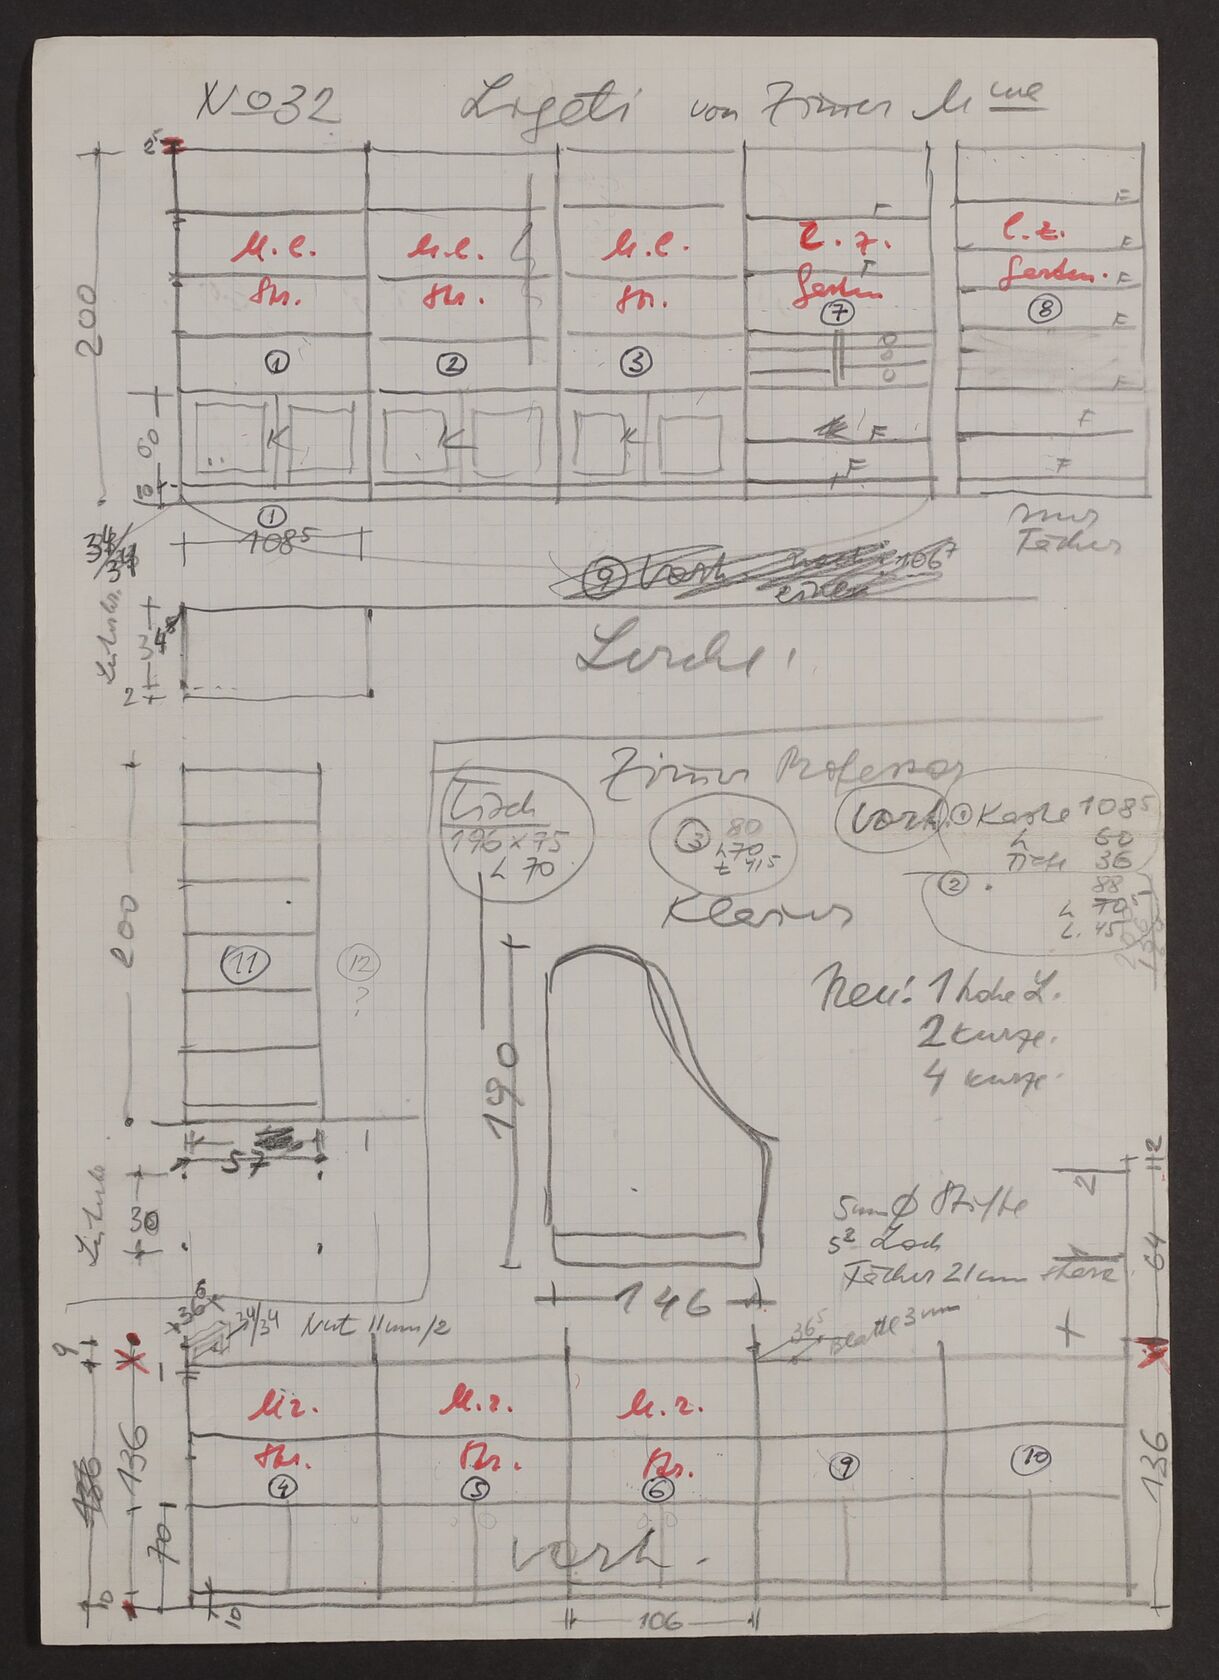 No 32 Ligeti von Zimmer Mme
2⁵
200
60
10
M.Z. M.Z. M.Z. C.Z. C.Z.
Str. Str. Str. Garten Garten.
① ② ③ ⑦ ⑧
K K K
F F F F F F F F F F F
nur
Fächer
①
108⁵
34/34
⑨ Vorh. 106⁷
Lerche!
34
2
200
⑪ ⑫
?
57
30
Zimmer Professor
Tisch
196 x 75
L 70
③ 80
L 70
t 41⁵
Vorh. ① Kaste 108⁵
L 60
Tiefe 36
② . 88
L 70
L. 45
Klavier
190
146
Neu: 1 hohe L.
2 kurze.
4 kurze.
5mm Ø Stifte
5² Loch
Fächer 21mm stark
2
112
64
136
36⁶
34/34 Nut 11mm/2
36⁵ Platte 3mm
9
136
136
70
10
10
M.Z. M.Z. M.Z.
Str. Str. Str.
④ ⑤ ⑥ ⑨ ⑩
Vorh.
106